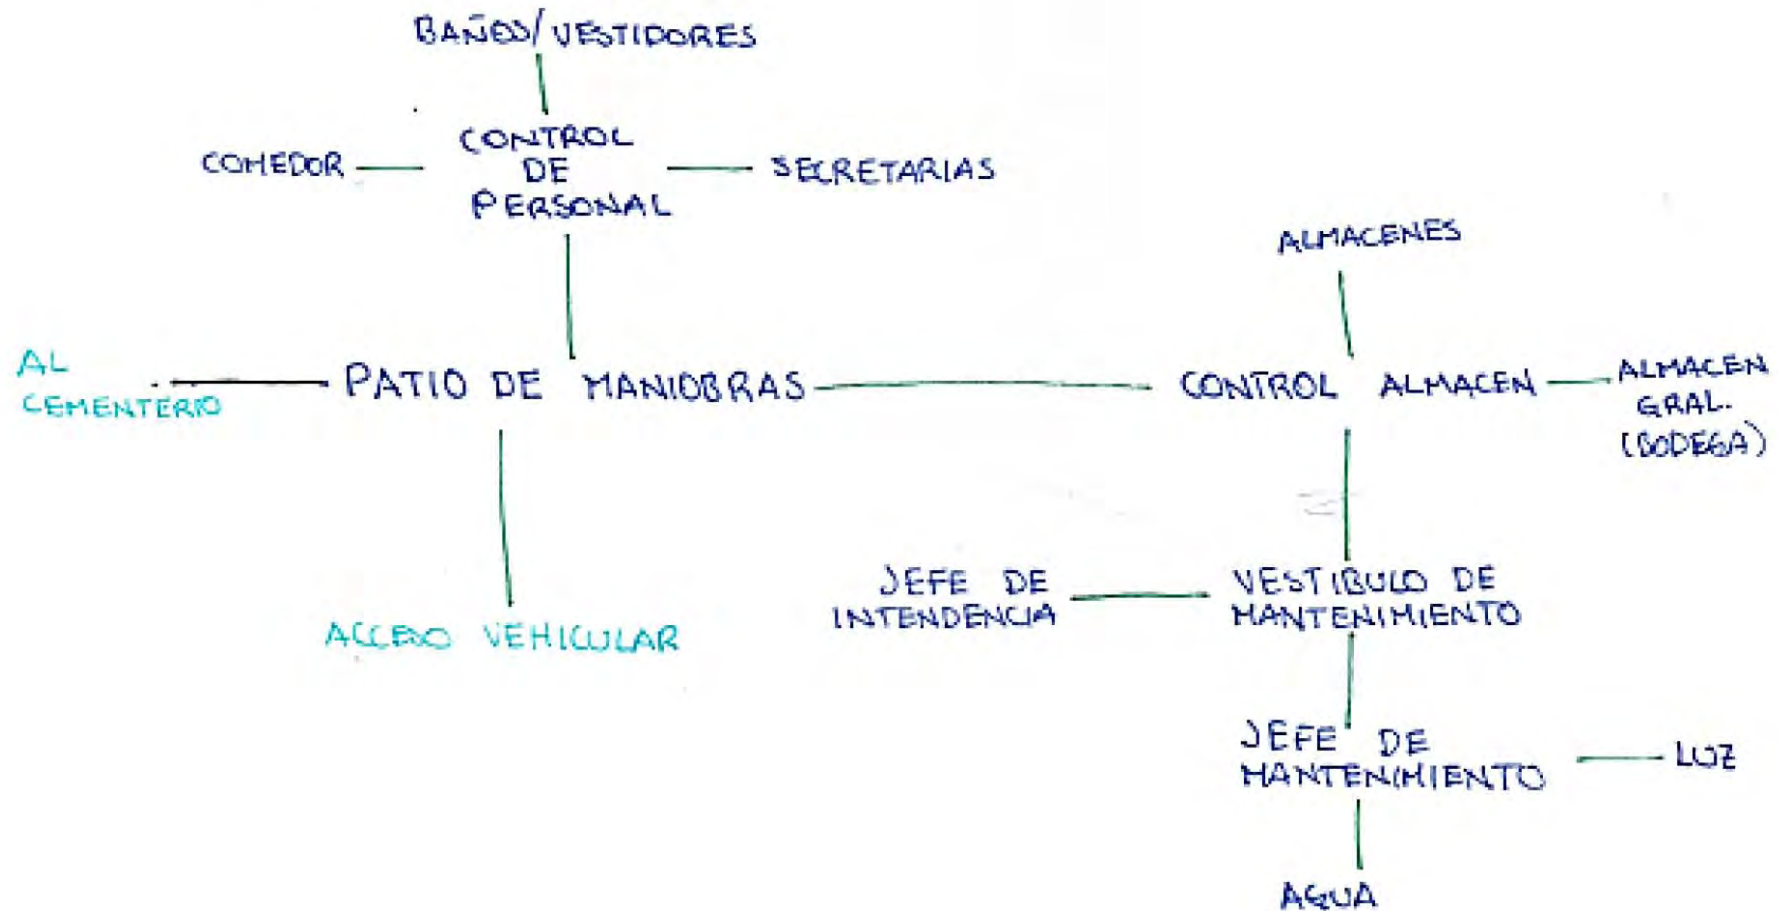 BAÑOS/VESTIDORES
COMEDOR
CONTROL
DE
PERSONAL
SECRETARIAS
ALMACENES
AL
CEMENTERIO
PATIO DE MANIOBRAS
CONTROL ALMACEN
ALMACEN
GRAL.
(BODEGA)
JEFE DE
INTENDENCIA
VESTIBULO DE
MANTENIMIENTO
ACCESO VEHICULAR
JEFE DE
MANTENIMIENTO
LUZ
AGUA